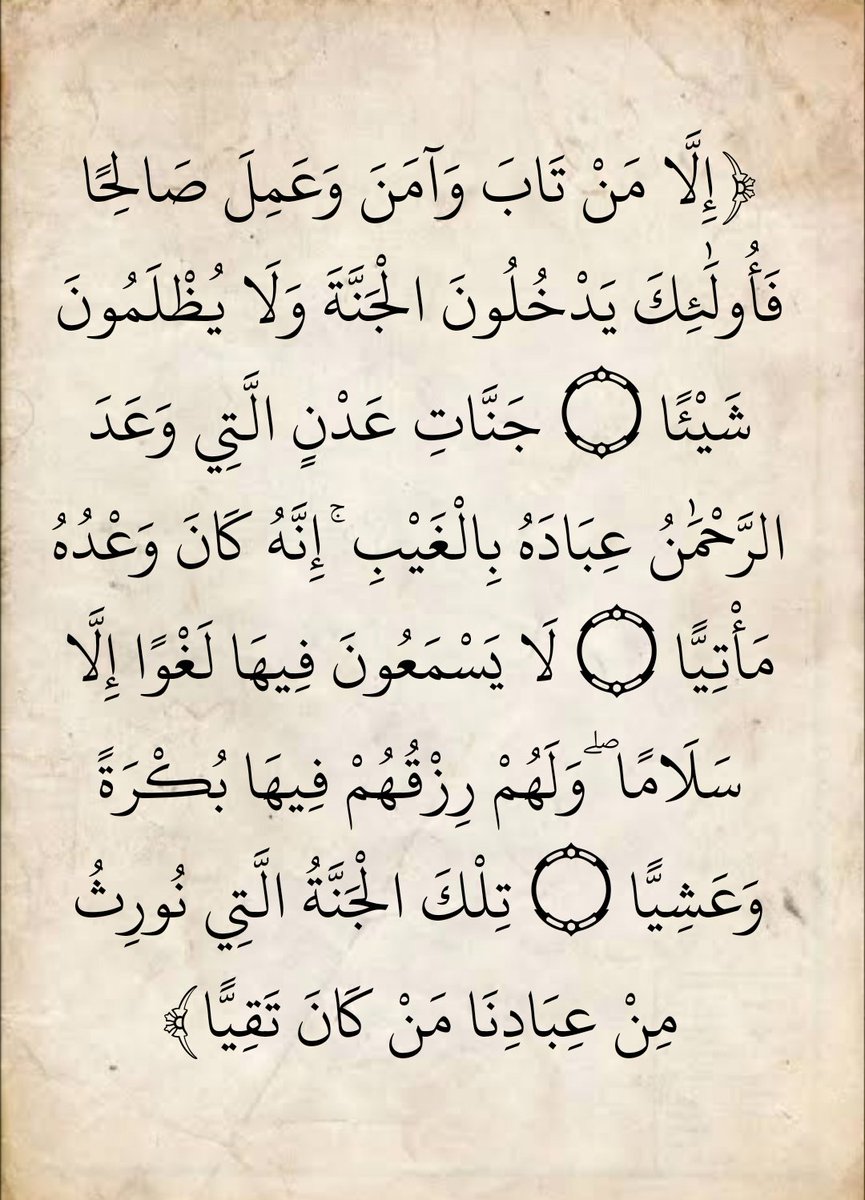 ﴿إِلَّا مَنْ تَابَ وَآمَنَ وَعَمِلَ صَالِحًا
فَأُولَٰئِكَ يَدْخُلُونَ الْجَنَّةَ وَلَا يُظْلَمُونَ
شَيْئًا ۝ جَنَّاتِ عَدْنٍ الَّتِي وَعَدَ
الرَّحْمَٰنُ عِبَادَهُ بِالْغَيْبِ ۚ إِنَّهُ كَانَ وَعْدُهُ
مَأْتِيًّا ۝ لَا يَسْمَعُونَ فِيهَا لَغْوًا إِلَّا
سَلَامًا ۖ وَلَهُمْ رِزْقُهُمْ فِيهَا بُكْرَةً
وَعَشِيًّا ۝ تِلْكَ الْجَنَّةُ الَّتِي نُورِثُ
مِنْ عِبَادِنَا مَنْ كَانَ تَقِيًّا﴾